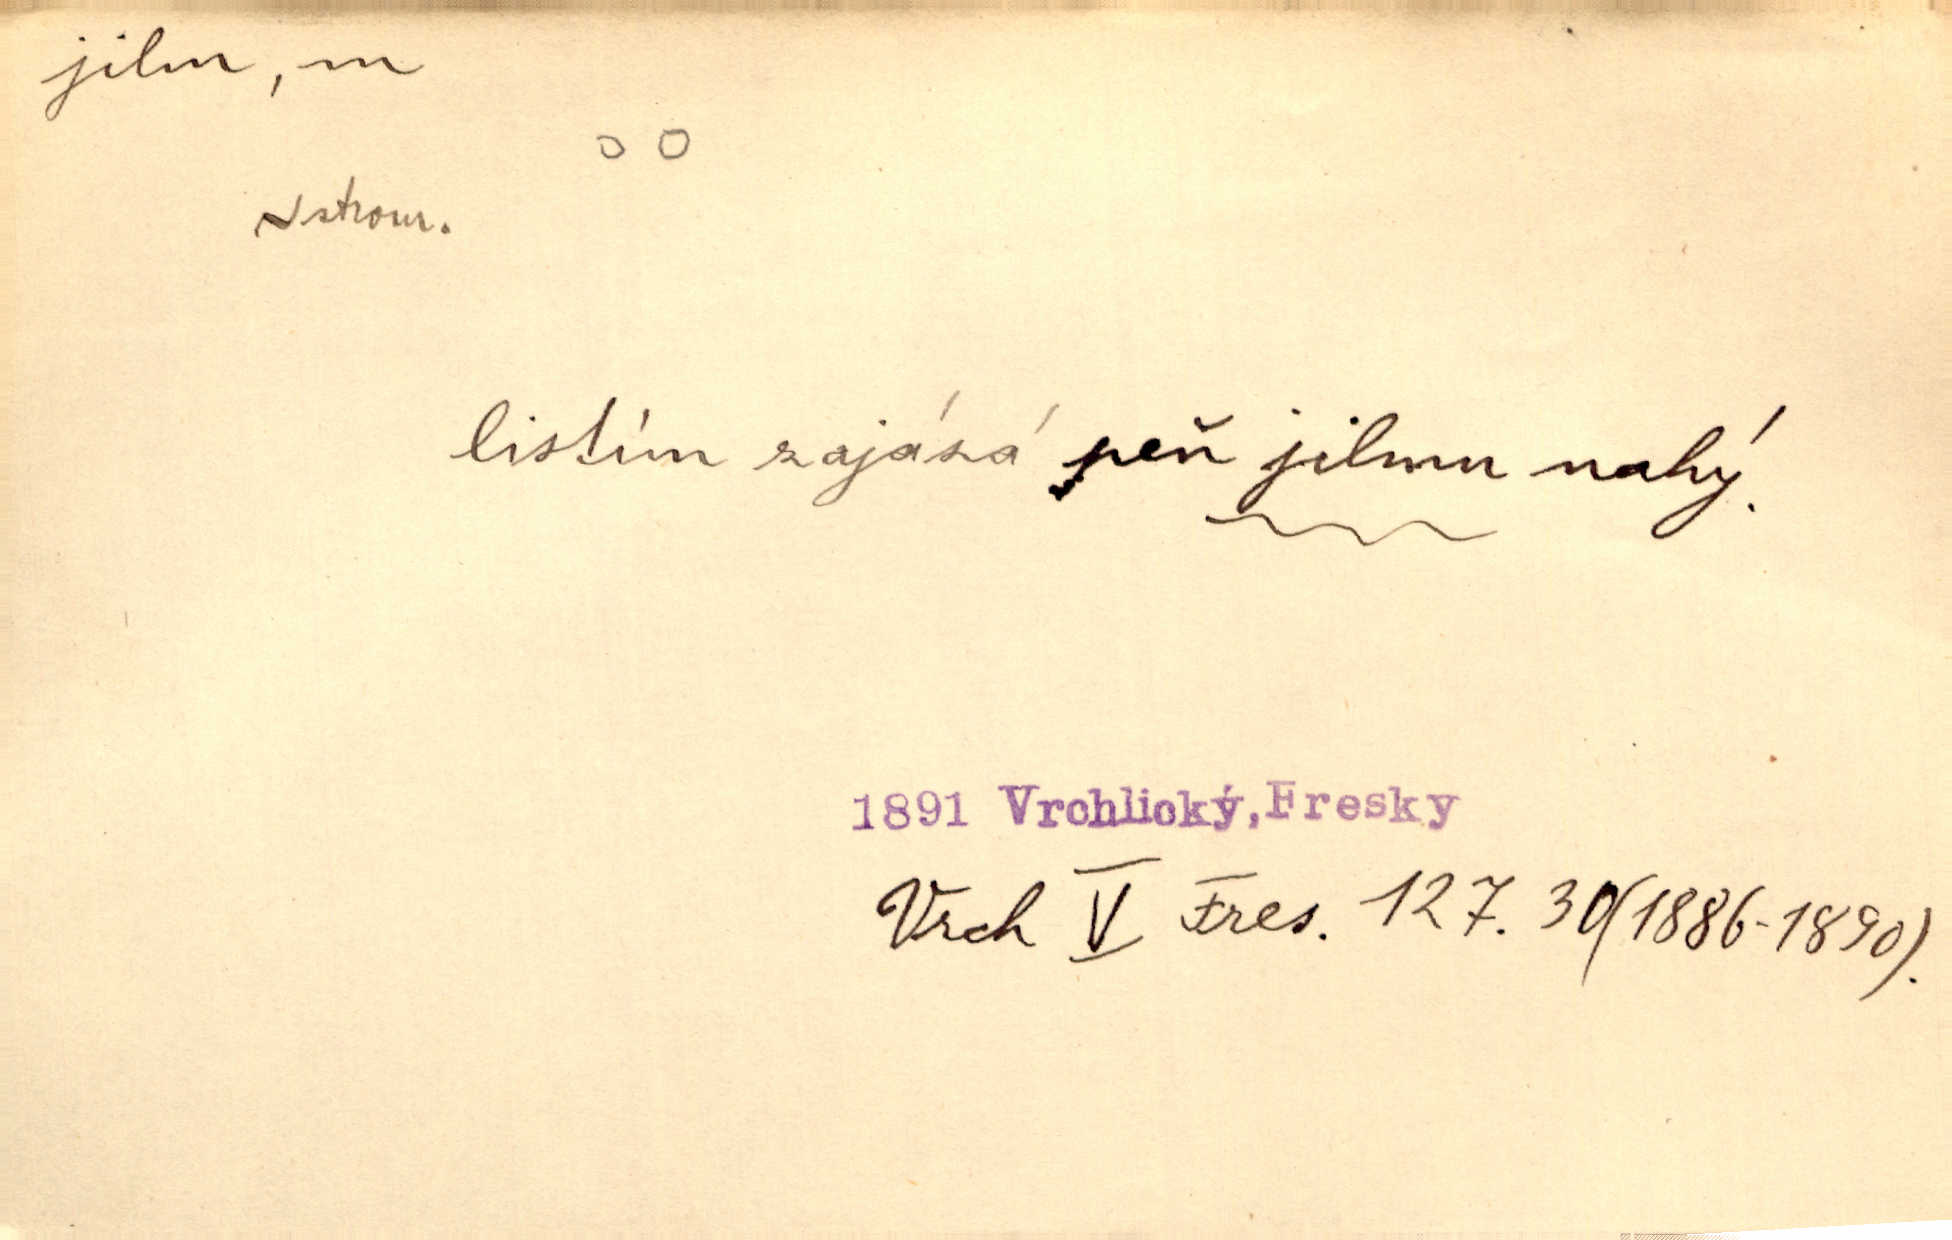 jilm, m
strom.
listím zajásá peň jilmu nahý.
1891 Vrchlický, Fresky
Vrch V Fres. 127. 30 (1886-1890).